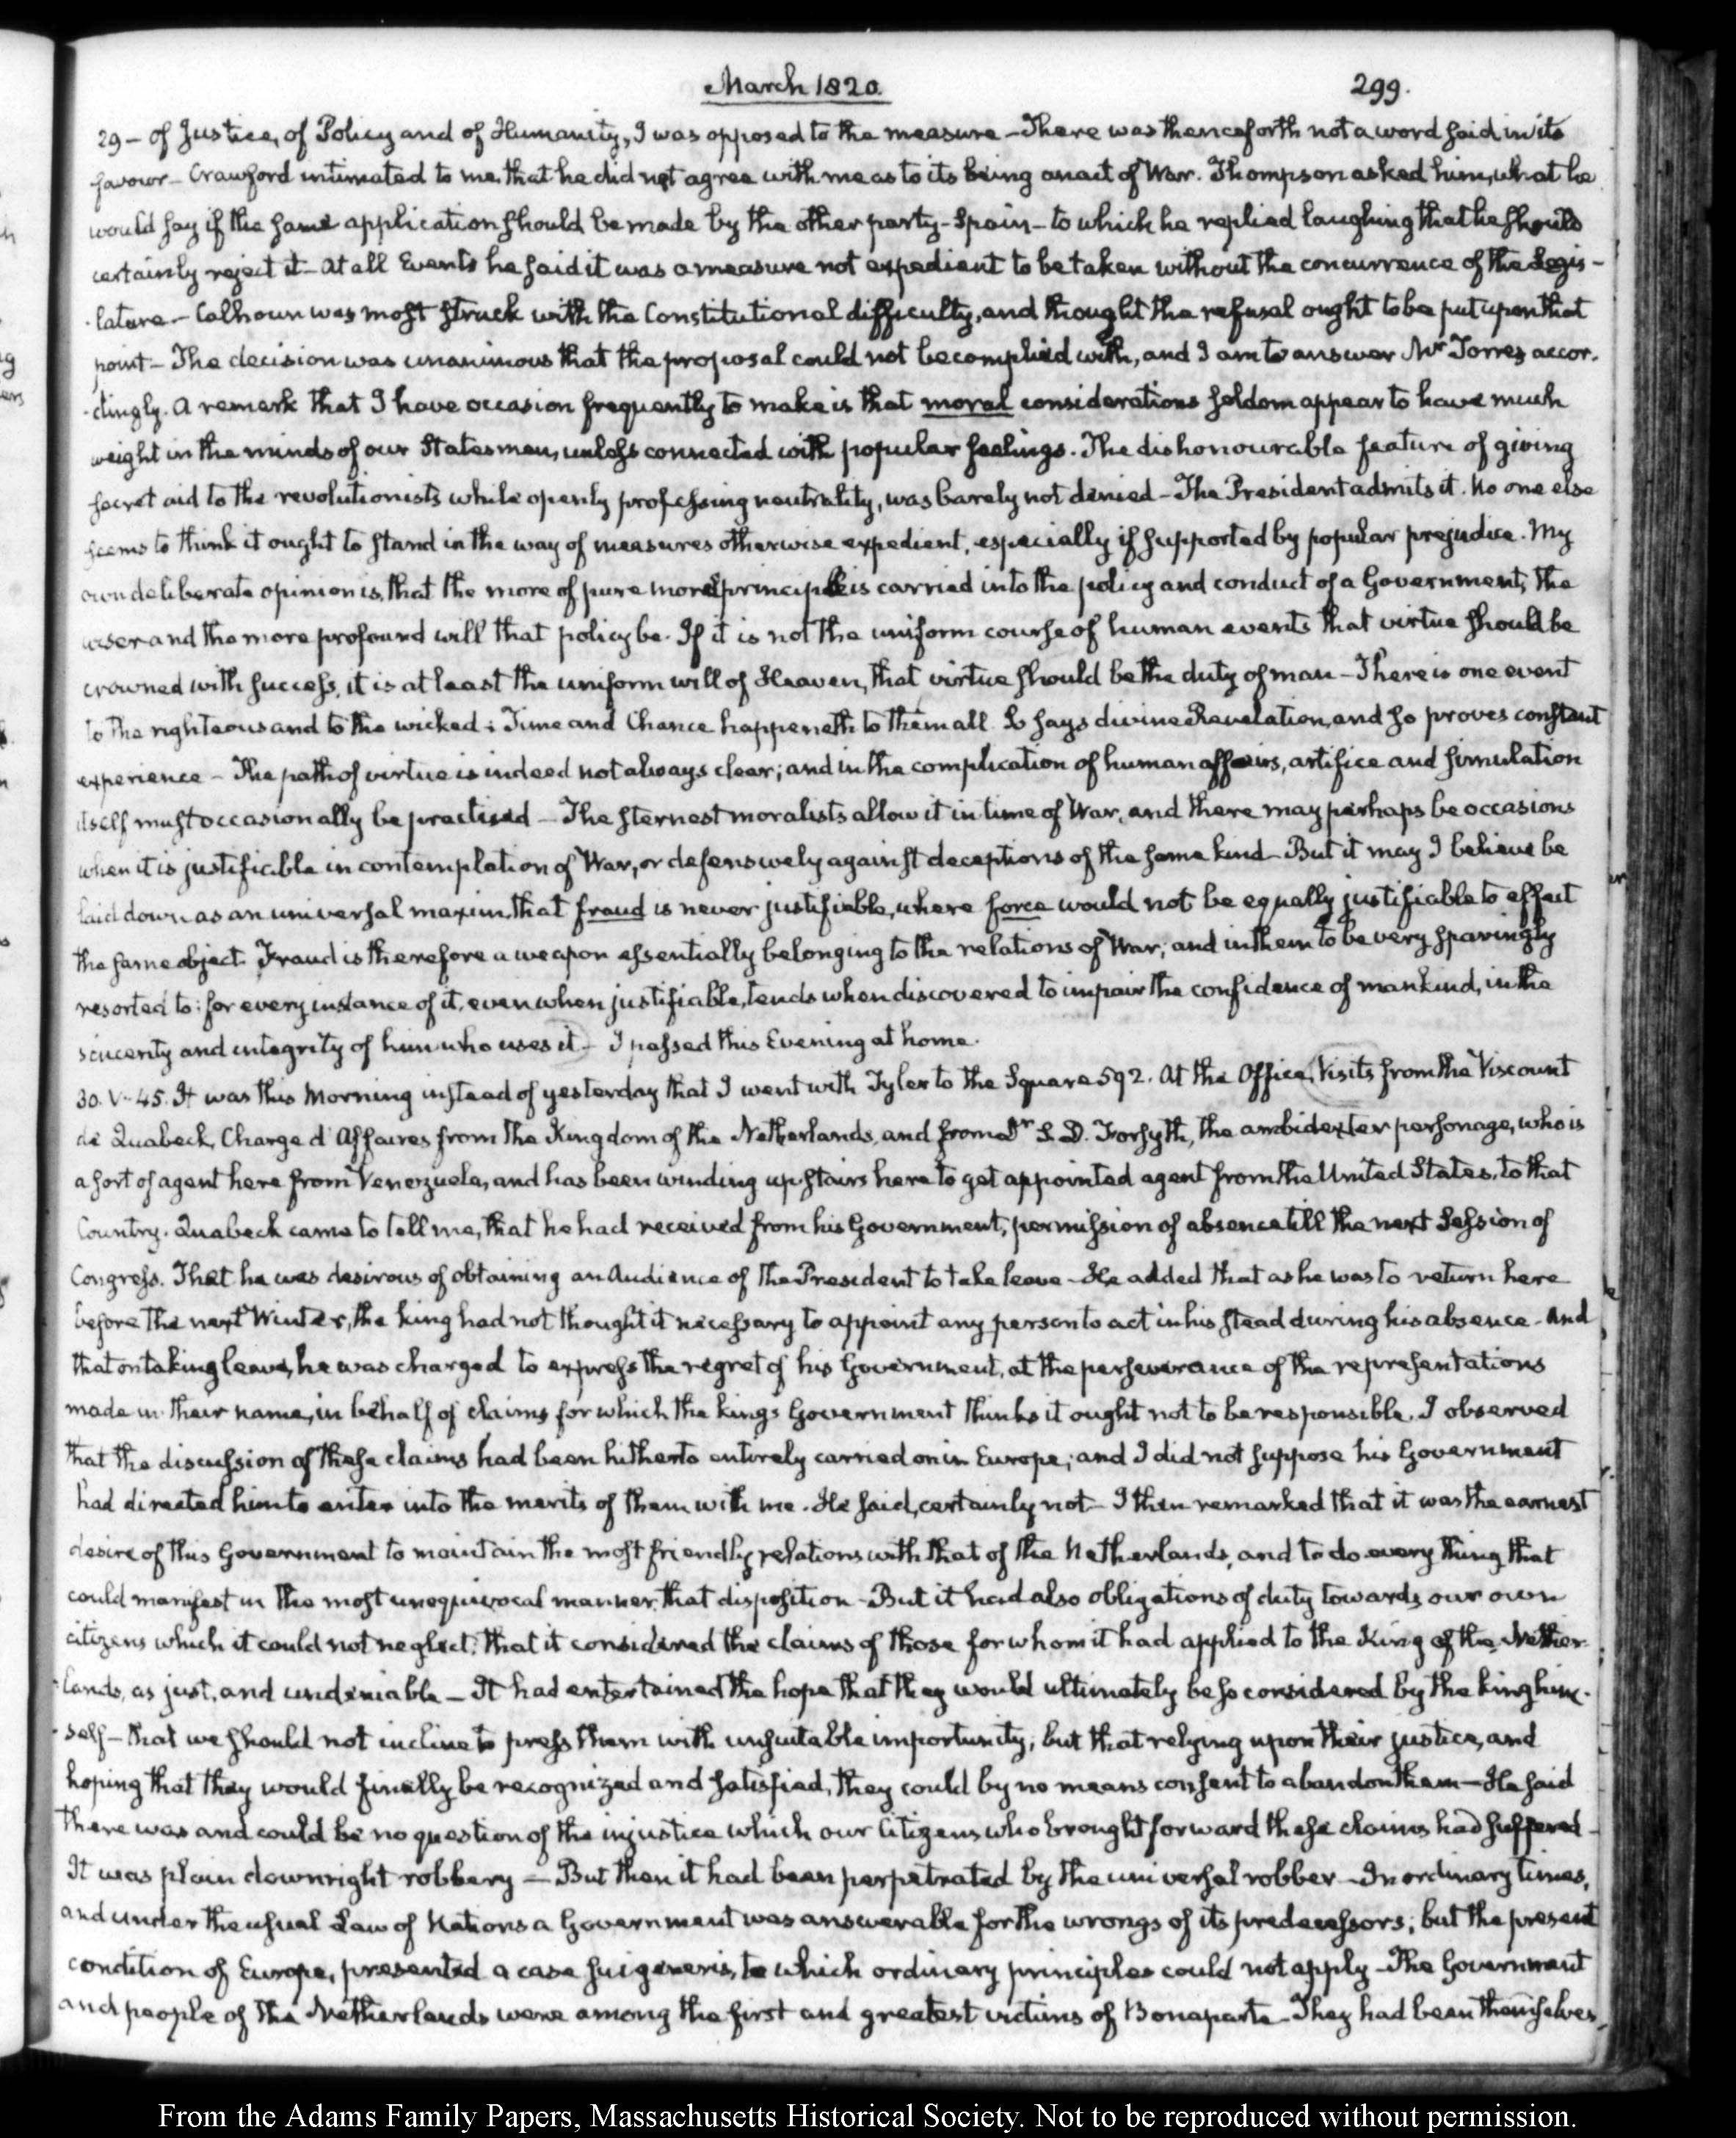 March 1820.
299.
29 – of Justice, of Policy and of Humanity, I was opposed to the measure – There was thenceforth not a word said in its
favour – Crawford intimated to me, that he did not agree with me as to its being an act of War. Thompson asked him, what he
would say if the same application should be made by the other party – Spain – to which he replied laughing that he should
certainly reject it – At all Events he said it was a measure not expedient to be taken without the concurrence of the Legis-
-lature – Calhoun was most struck with the Constitutional difficulty, and thought the refusal ought to be put upon that
point – The decision was unanimous that the proposal could not be complied with, and I am to answer Mr Torres accor-
-dingly. A remark that I have occasion frequently to make is that moral considerations seldom appear to have much
weight in the minds of our Statesmen, unless connected with popular feelings. The dishonourable feature of giving
secret aid to the revolutionists while openly professing neutrality, was barely not denied – The President admits it. No one else
seems to think it ought to stand in the way of measures otherwise expedient, especially if supported by popular prejudice. My
own deliberate opinion is, that the more of pure moral principle is carried into the policy and conduct of a Government, the
wiser and the more profound will that policy be. If it is not the uniform course of human events that virtue should be
crowned with success, it is at least the uniform will of Heaven, that virtue should be the duty of man – There is one event
to the righteous and to the wicked: Time and Chance happeneth to them all. So says divine Revelation, and so proves constant
experience – The path of virtue is indeed not always clear; and in the complication of human affairs, artifice and simulation
itself must occasionally be practised – The sternest moralists allow it in time of War, and there may perhaps be occasions
when it is justifiable in contemplation of War, or defensively against deceptions of the same kind – But it may I believe be
laid down as an universal maxim, that fraud is never justifiable, where force would not be equally justifiable to effect
the same object. Fraud is therefore a weapon essentially belonging to the relations of War; and in them to be very sparingly
resorted to; for every instance of it, even when justifiable, tends when discovered to impair the confidence of mankind, in the
sincerity and integrity of him who uses it – I passed this Evening at home.
30. V. 45. It was this Morning instead of yesterday that I went with Tyler to the Square 592. At the Office, Visits from the Viscount
de Quabeck, Chargé d'Affaires from the Kingdom of the Netherlands, and from Mr S. D. Forsyth, the ambidexter personage, who is
a sort of agent here from Venezuela, and has been winding up stairs here to get appointed agent from the United States, to that
Country. Quabeck came to tell me, that he had received from his Government, permission of absence till the next Session of
Congress. That he was desirous of obtaining an Audience of the President to take leave – He added that as he was to return here
before the next Winter, the king had not thought it necessary to appoint any person to act in his stead during his absence – And
that on taking leave, he was charged to express the regret of his Government, at the perseverance of the representations
made in their name, in behalf of claims for which the king's Government thinks it ought not to be responsible. I observed
that the discussion of these claims had been hitherto entirely carried on in Europe; and I did not suppose his Government
had directed him to enter into the merits of them with me. He said, certainly not – I then remarked that it was the earnest
desire of this Government to maintain the most friendly relations with that of the Netherlands, and to do every thing that
could manifest in the most unequivocal manner that disposition – But it had also obligations of duty towards our own
citizens which it could not neglect: that it considered the claims of those for whom it had applied to the King of the Nether-
-lands, as just, and undeniable – It had entertained the hope that they would ultimately be so considered by the king him-
-self – that we should not incline to press them with unsuitable importunity; but that relying upon their justice, and
hoping that they would finally be recognized and satisfied, they could by no means consent to abandon them – He said
there was and could be no question of the injustice which our Citizens who brought forward these claims had suffered –
It was plain downright robbery – But then it had been perpetrated by the universal robber – In ordinary times,
and under the usual Law of Nations a Government was answerable for the wrongs of its predecessors; but the present
condition of Europe, presented a case sui generis, to which ordinary principles could not apply – The Government
and people of the Netherlands were among the first and greatest victims of Bonaparte – They had been themselves
From the Adams Family Papers, Massachusetts Historical Society. Not to be reproduced without permission.